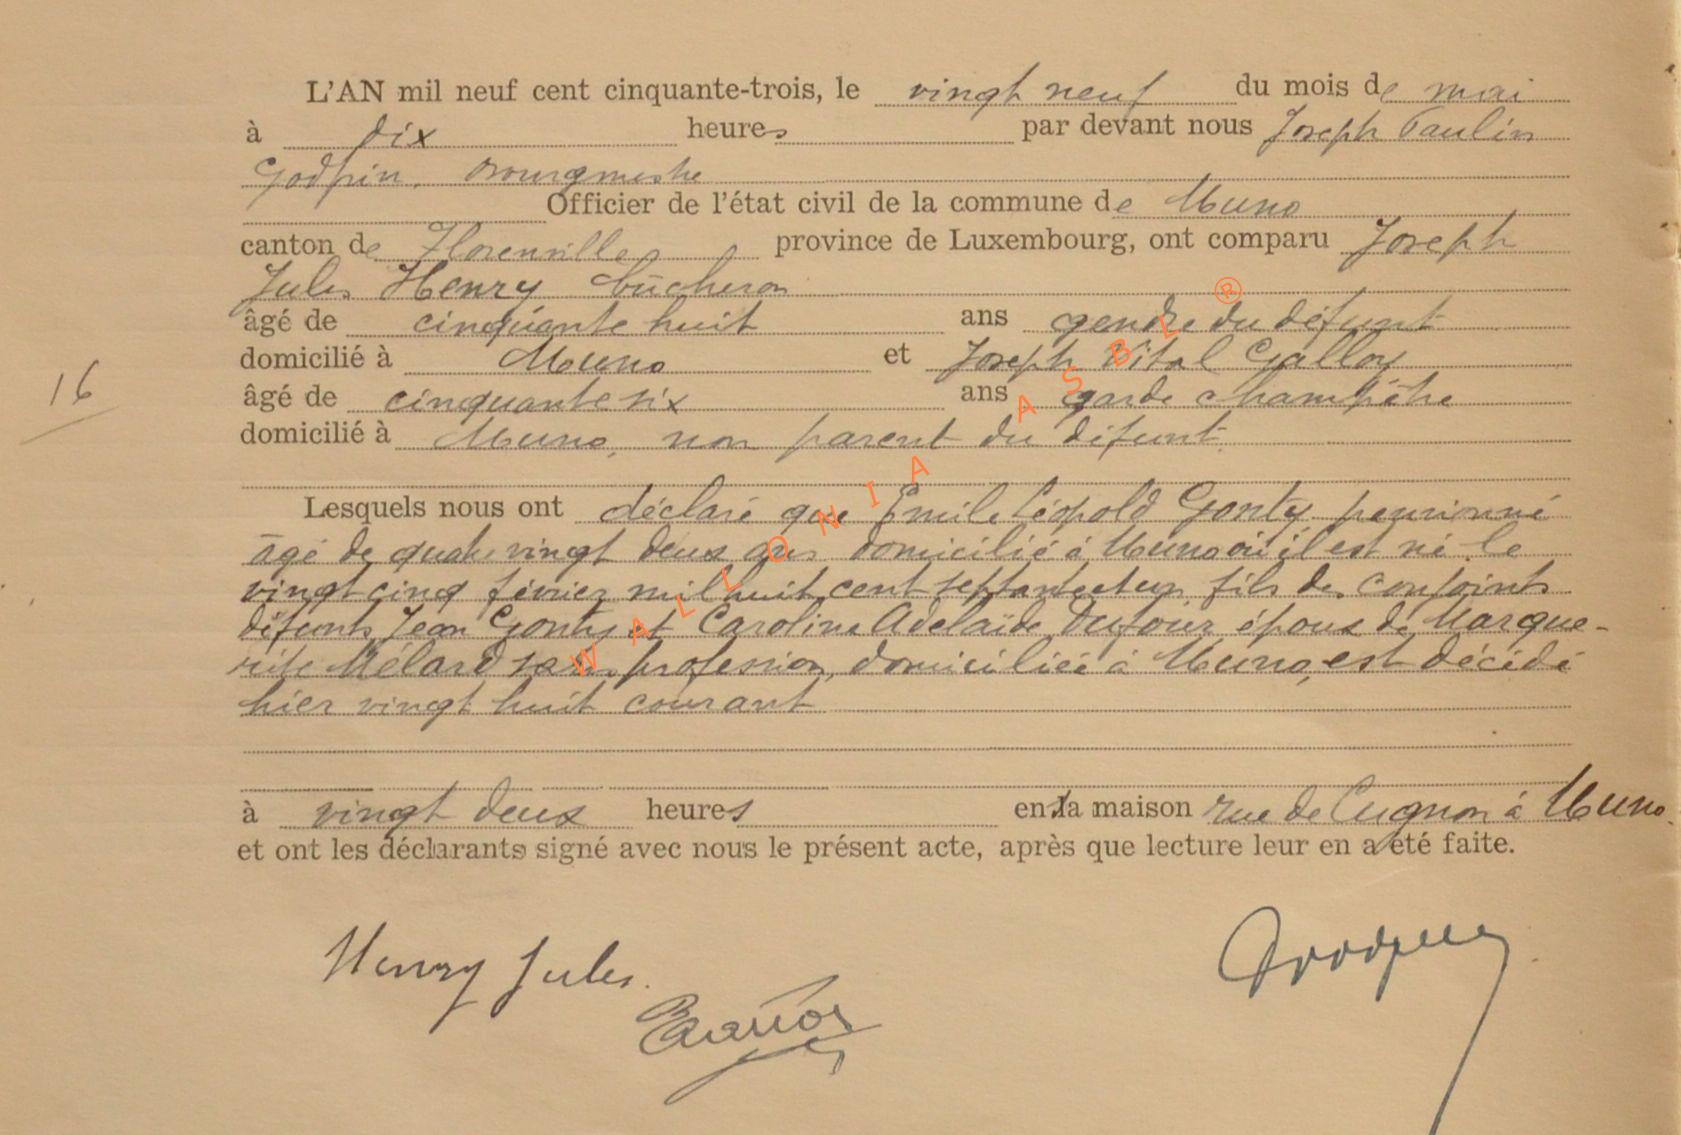 L'AN mil neuf cent cinquante-trois, le vingt neuf du mois de mai
à dix heures par devant nous Joseph Paulin
Godfrin, Bourgmestre
Officier de l'état civil de la commune de Muno
canton de Florenville province de Luxembourg, ont comparu Joseph
Jules Henry bûcheron
âgé de cinquante huit ans gendre du défunt
domicilié à Muno et Joseph Vital Galloy
âgé de cinquante six ans garde champêtre
16
domicilié à Muno, non parent du défunt.
Lesquels nous ont déclaré que Emile Léopold Gonty, pensionné
âgé de quatre vingt deux ans domicilié à Muno où il est né le
vingt cinq février mil huit cent septante et un, fils des conjoints
défunts Jean Gonty et Caroline Adelaïde Dufour, époux de Margue-
rite Mélard sans profession, domiciliée à Muno, est décédé
hier vingt huit courant
à vingt deux heures en sa maison rue de Cugnon à Muno.
et ont les déclarants signé avec nous le présent acte, après que lecture leur en a été faite.
Henry Jules.
WALLONIA ASBL ®